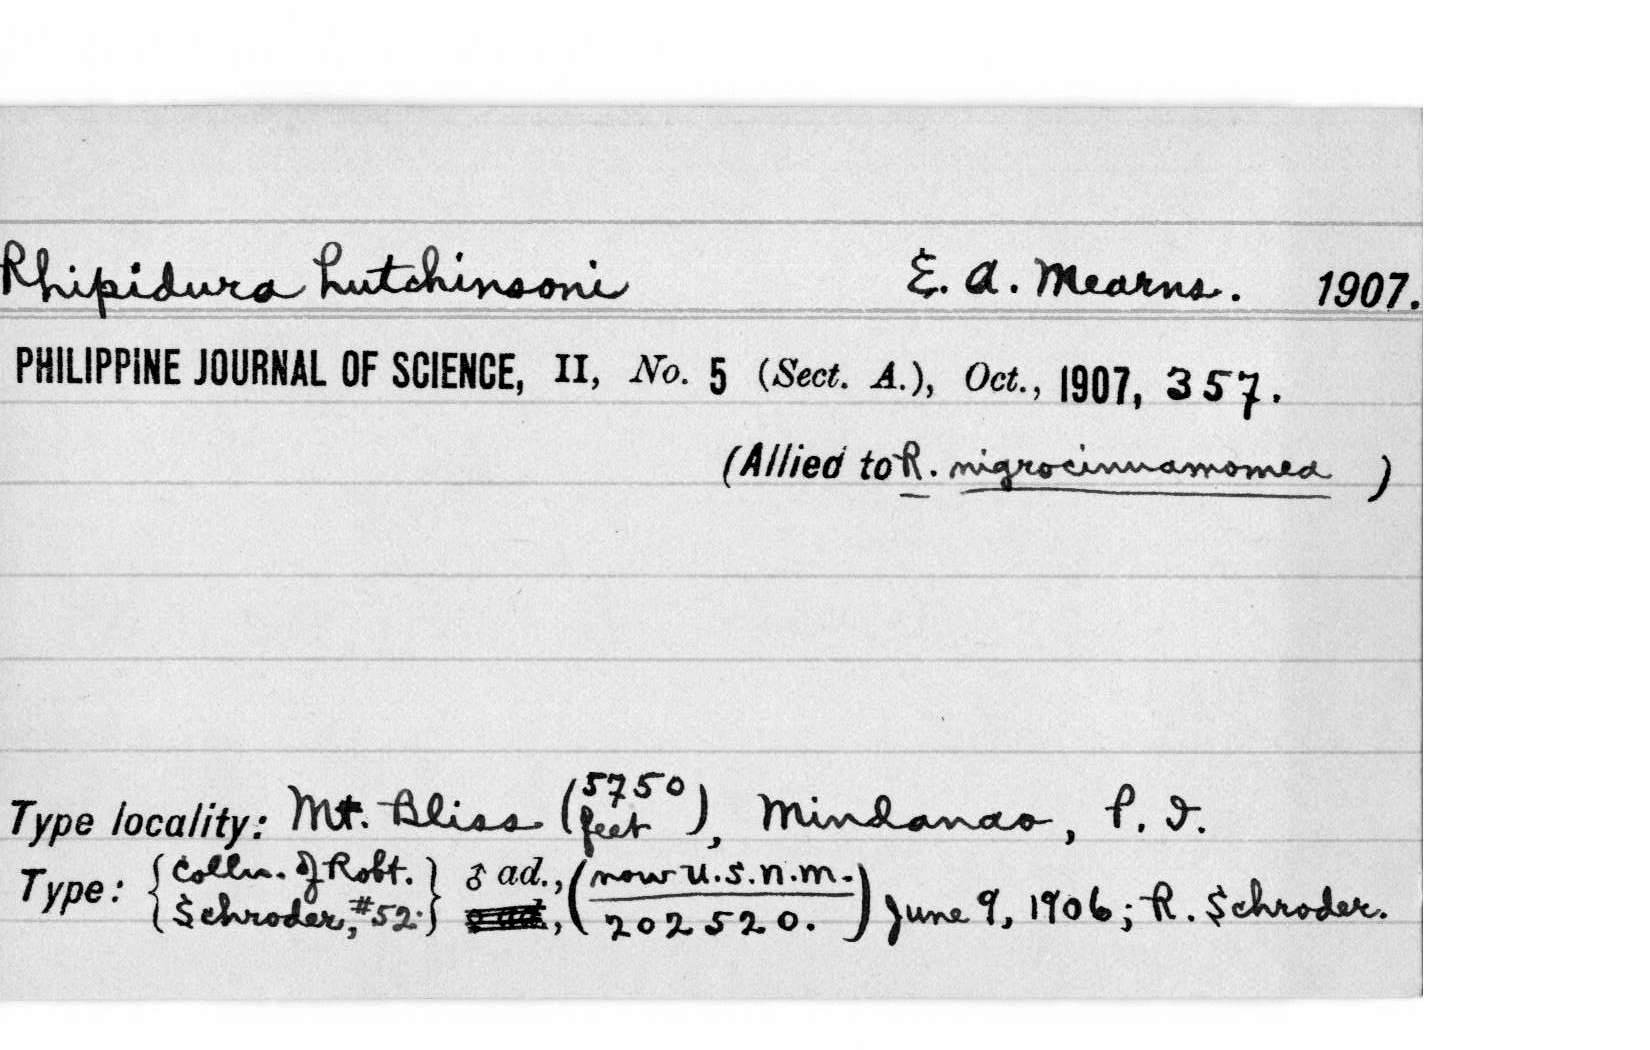 Rhipidura hutchinsoni E. A. Mearns. 1907.
PHILIPPINE JOURNAL OF SCIENCE, II, No. 5 (Sect. A.), Oct., 1907, 357.
(Allied to R. nigrocinnamomea )
Type locality: Mt. Bliss (5750 feet), Mindanao, P. I.
Type: {Colln. of Robt. Schroder, #52.} ♂ ad., (now U.S.N.M. 202520.) June 9, 1906; R. Schroder.